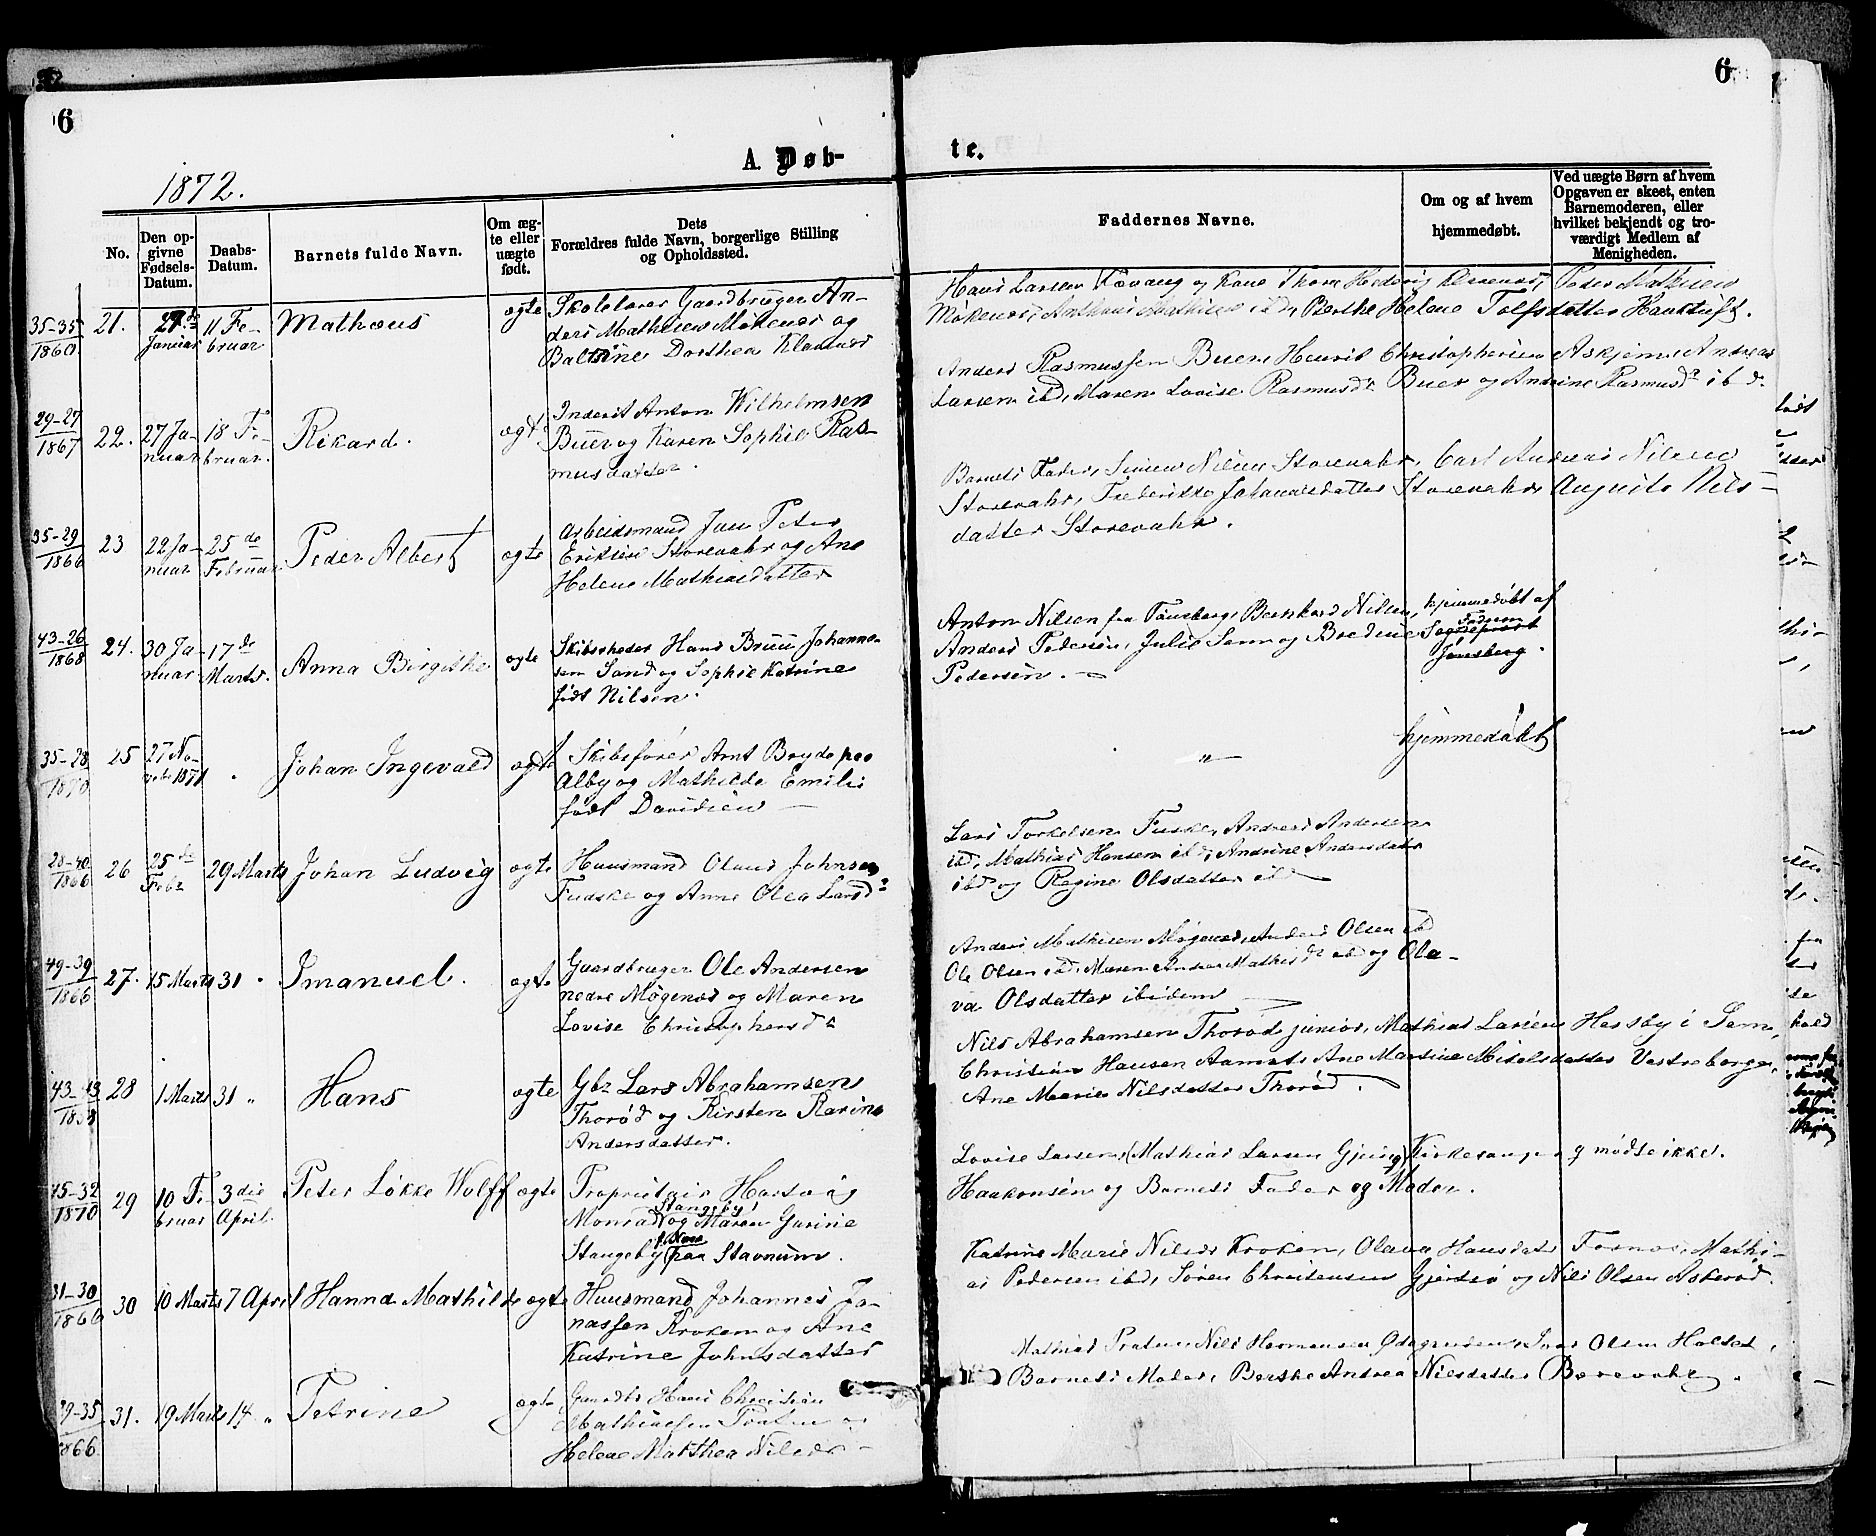 6
6
A. Døb-
te.
1872.
No.
Den op-
givne
Fødsels-
Datum.
Daabs-
Datum.
Barnets fulde Navn.
Om æg-
te eller
uægte
født.
Dets
Forældres fulde Navn, borgerlige Stilling
og Opholdssted.
Faddernes Navne.
Om og af hvem
hjemmedøbt.
Ved uægte Børn af hvem
Opgaven er skeet, enten
Barnemoderen, eller
hvilket bekjendt og tro-
værdigt Medlem af
Menigheden.
35-35
1860
21.
Januar
11 Fe-
bruar
Mathæus
ægte
Skolelærer Gaardbruger An-
ders Mathisen og
Dorthea
Hans Larsen og Kone Peder Mathisen
Berthe Helene Tolfsdatter
29-27
1867
22.
27 Ja-
nuar
18 Fe-
bruar.
Rikard.
ægte
Inderst Anton Wilhelmsen
Buer og Karen Sophie Ras-
musdatter.
Anders Rasmussen Buer, Henrik Christophersen Askjem, Andreas
Larsen ibd, Maren Lovise Rasmusdr Buer og Andrine Rasmusdr ibd.
35-29
1866
23
22 Ja-
nuar
25 de
Februar
Peder Albert
ægte
Arbeidsmand Jan Peter
Eriksen Storevahr og Ane
Helene Mathiasdatter
Barnets Fader, Simen Nilsen Storevahr, Carl Andreas Nilsen
Storevahr, Frederikke Johannesdatter Storevahr, Auguste Nils-
datter Storevahr.
43-26
1868
24.
30 Ja-
nuar
17 de
Marts.
Anna Birgithe
ægte
Skibsrheder Hans Bruu Johanne-
sen Sand og Sophie Katrine
født Nilsen.
Anton Nilsen fra Tønsberg, Bernhard Nilsen,
Anders Pedersen, Julie Sem og Bredine
Pedersen.
hjemmedøbt af
Sogneprest
Jønsberg.
35-28
1870
25
27 No-
vebr 1871
Johan Ingevald
ægte
Skibsfører Arnt Bryde paa
Alby og Mathilde Emilie
født Davidsen
"
hjemmedøbt
28-40
1866
26
25 de
Febr
29 Marts
Johan Ludvig
ægte
Huusmand Olaus Johnsen
Fuske og Anne Olea Larsdr
Lars Torkelsen Fuske, Andreas Andersen
ibd, Mathias Hansen ibd, Andrine Andersdatr
ibd og Regine Olsdatter ibd
49-39
1866
27.
15 Marts
31 "
Imanuel.
ægte
Gaardbruger Ole Andersen
nedre Møgenæs og Maren
Lovise Christophersdr
Anders Mathisen Møgenæs, Anders Olsen ibd
Ole Olsen ibd, Maren Andrea Mathisdr ibd og Ola-
va Olsdatter ibidem
43-43
28
1 Marts
31 "
Hans
ægte
Gbr Lars Abrahamsen
Thorød og Kirsten Karine
Andersdatter.
Nils Abrahamsen Thorød junior, Mathias Larsen Hesby i Sem,
Christian Hansen Aamot, Ane Martine Mikelsdatter Vestreborge,
Ane Marie Nilsdatter Thorød.
45-32
1870
29
10 Fe-
bruar
3 die
April.
Peter Løkke Wolff
ægte
Proprietair Hartvig
Monrad og Maren Gurine
Stangeby paa Stavnum.
Lovise Larsen, (Mathias Larsen Gjerø) Kirkesanger og mødte ikke.
Haakonsen og Barnets Fader og Moder.
31-30
1866
30
10 Marts
7 April
Hanna Mathilde
ægte
Huusmand Johannes Jo-
nassen Kroken og Ane
Katrine Johnsdatter
Katrine Marie Nilsdr Kroken, Olava Hansdatr Fosnæs, Mathi-
as Pedersen ibd, Søren Christensen Gjersø og Nils Olsen Askerød.
39-35
1866
31.
19 Marts
14 "
Petrine
ægte
Gaardbr Hans Christian
Mathiassen Pratum og
Helene Mathea Nilsdr
Mathias Pratum, Nils Hermansen Ødegaarden, Ivar Olsen Holtet,
Barnets Moder, Berthe Andrea Nilsdatter Borevahr.